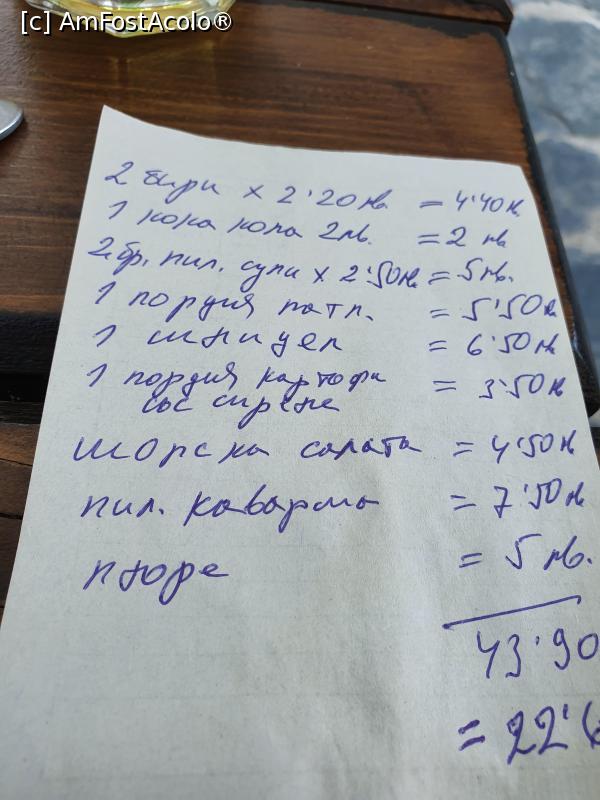 [c] AmFostAcolo®
2 бири x 2'20 лв. = 4'40 лв.
1 кока кола 2лв. = 2 лв
2 бр. пил. супи x 2'50 лв = 5 лв.
1 порция патл. = 5'50 лв
1 шницел = 6'50 лв
1 порция картофи = 3'50 лв
със сирене
шопска салата = 4'50 лв
пил. каварма = 7'50 лв
пюре = 5 лв.
43'90
= 22'